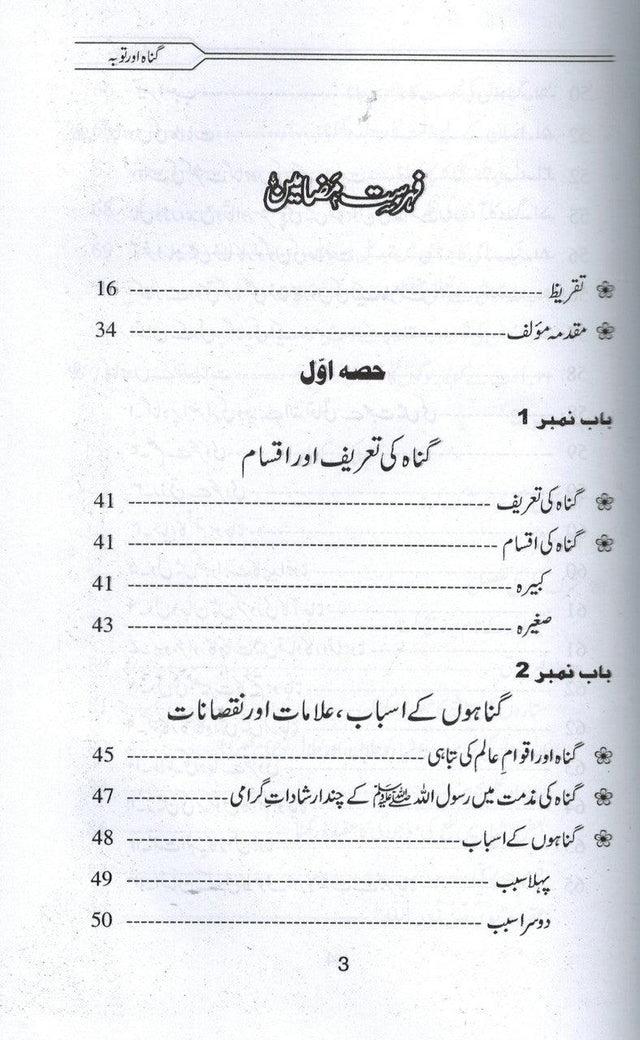 گناہ اور توبہ
فہرست مضامین
تقریظ ---------- 16
مقدمہ مؤلف ---------- 34
حصہ اوّل
باب نمبر 1
گناہ کی تعریف اور اقسام
گناہ کی تعریف ---------- 41
گناہ کی اقسام ---------- 41
کبیرہ ---------- 41
صغیرہ ---------- 43
باب نمبر 2
گناہوں کے اسباب، علامات اور نقصانات
گناہ اور اقوامِ عالم کی تباہی ---------- 45
گناہ کی مذمت میں رسول اللہ ﷺ کے چند ارشاداتِ گرامی ---------- 47
گناہوں کے اسباب ---------- 48
پہلا سبب ---------- 49
دوسرا سبب ---------- 50
3